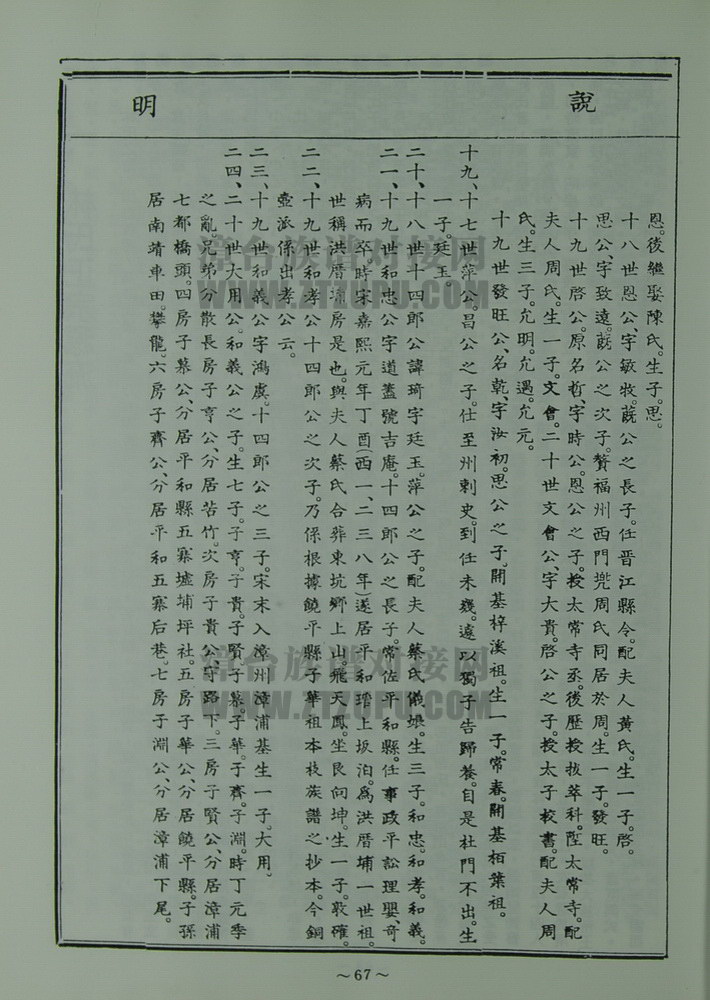 說明
恩。後繼娶陳氏。生子。思。
十八世恩公、字敏牧。蕆公之長子。任晋江縣令。配夫人黃氏。生一子。啓。
思公、字致遠。蕆公之次子。贅福州西門兠周氏同居於周。生一子。發旺。
十九世啓公。原名哲、字時公。恩公之子。授太常寺丞。後歷授拔萃科。陞太常寺。配
夫人周氏。生一子。文會。二十世文會公、字大貴。啓公之子。授太子校書。配夫人周
氏。生三子。允明。允遇。允元。
十九世發旺公、名乾、字汝初。思公之子。開基梓溪祖。生一子。常春。開基栢葉祖。
十九、十七世萍公。昌公之子。仕至州剌史。到任未幾。遠以獨子告歸養。自是杜門不出。生
一子。廷玉。
二十、十八世十四郎公諱琦字廷玉。萍公之子。配夫人蔡氏儀娘。生三子。和忠。和孝。和義。
二一、十九世和忠公字道蓋號吉庵。十四郎公之長子。常佐平和縣。任事政平訟理。嬰奇
病而卒時宋嘉熙元年丁酉(西一、二三八年)遂居平和琯上坂泊。為洪厝埔一世祖。
世稱洪厝埔房是也。與夫人蔡氏合葬東坑鄉上山。飛天鳳。坐艮向坤。生一子。敦確。
二二、十九世和孝公十四郎公之次子。乃係根據饒平縣子華祖本枝族譜之抄本。今銅
壺派係出孝公云。
二三、十九世和義公字鴻虞。十四郎公之三子。宋末入漳州漳浦基生一子。大用。
二四、二十世大用公。和義公之子。生七子。子亨。子貴。子賢。子慕。子華。子齊。子淵。時丁元季
之亂。兄弟分散長房子亨公、分居苦竹。次房子貴公、守路下。三房子賢公、分居漳浦
七都橋頭。四房子慕公、分居平和縣五寨墟埔坪社。五房子華公、分居饒平縣。子孫
居南靖車田。攀龍。六房子齊公、分居平和五寨后巷。七房子淵公、分居漳浦下尾。
漳台族谱对接网
WWW.ZTZUPU.COM
漳台族谱对接网
WWW.ZTZUPU.COM
～67～